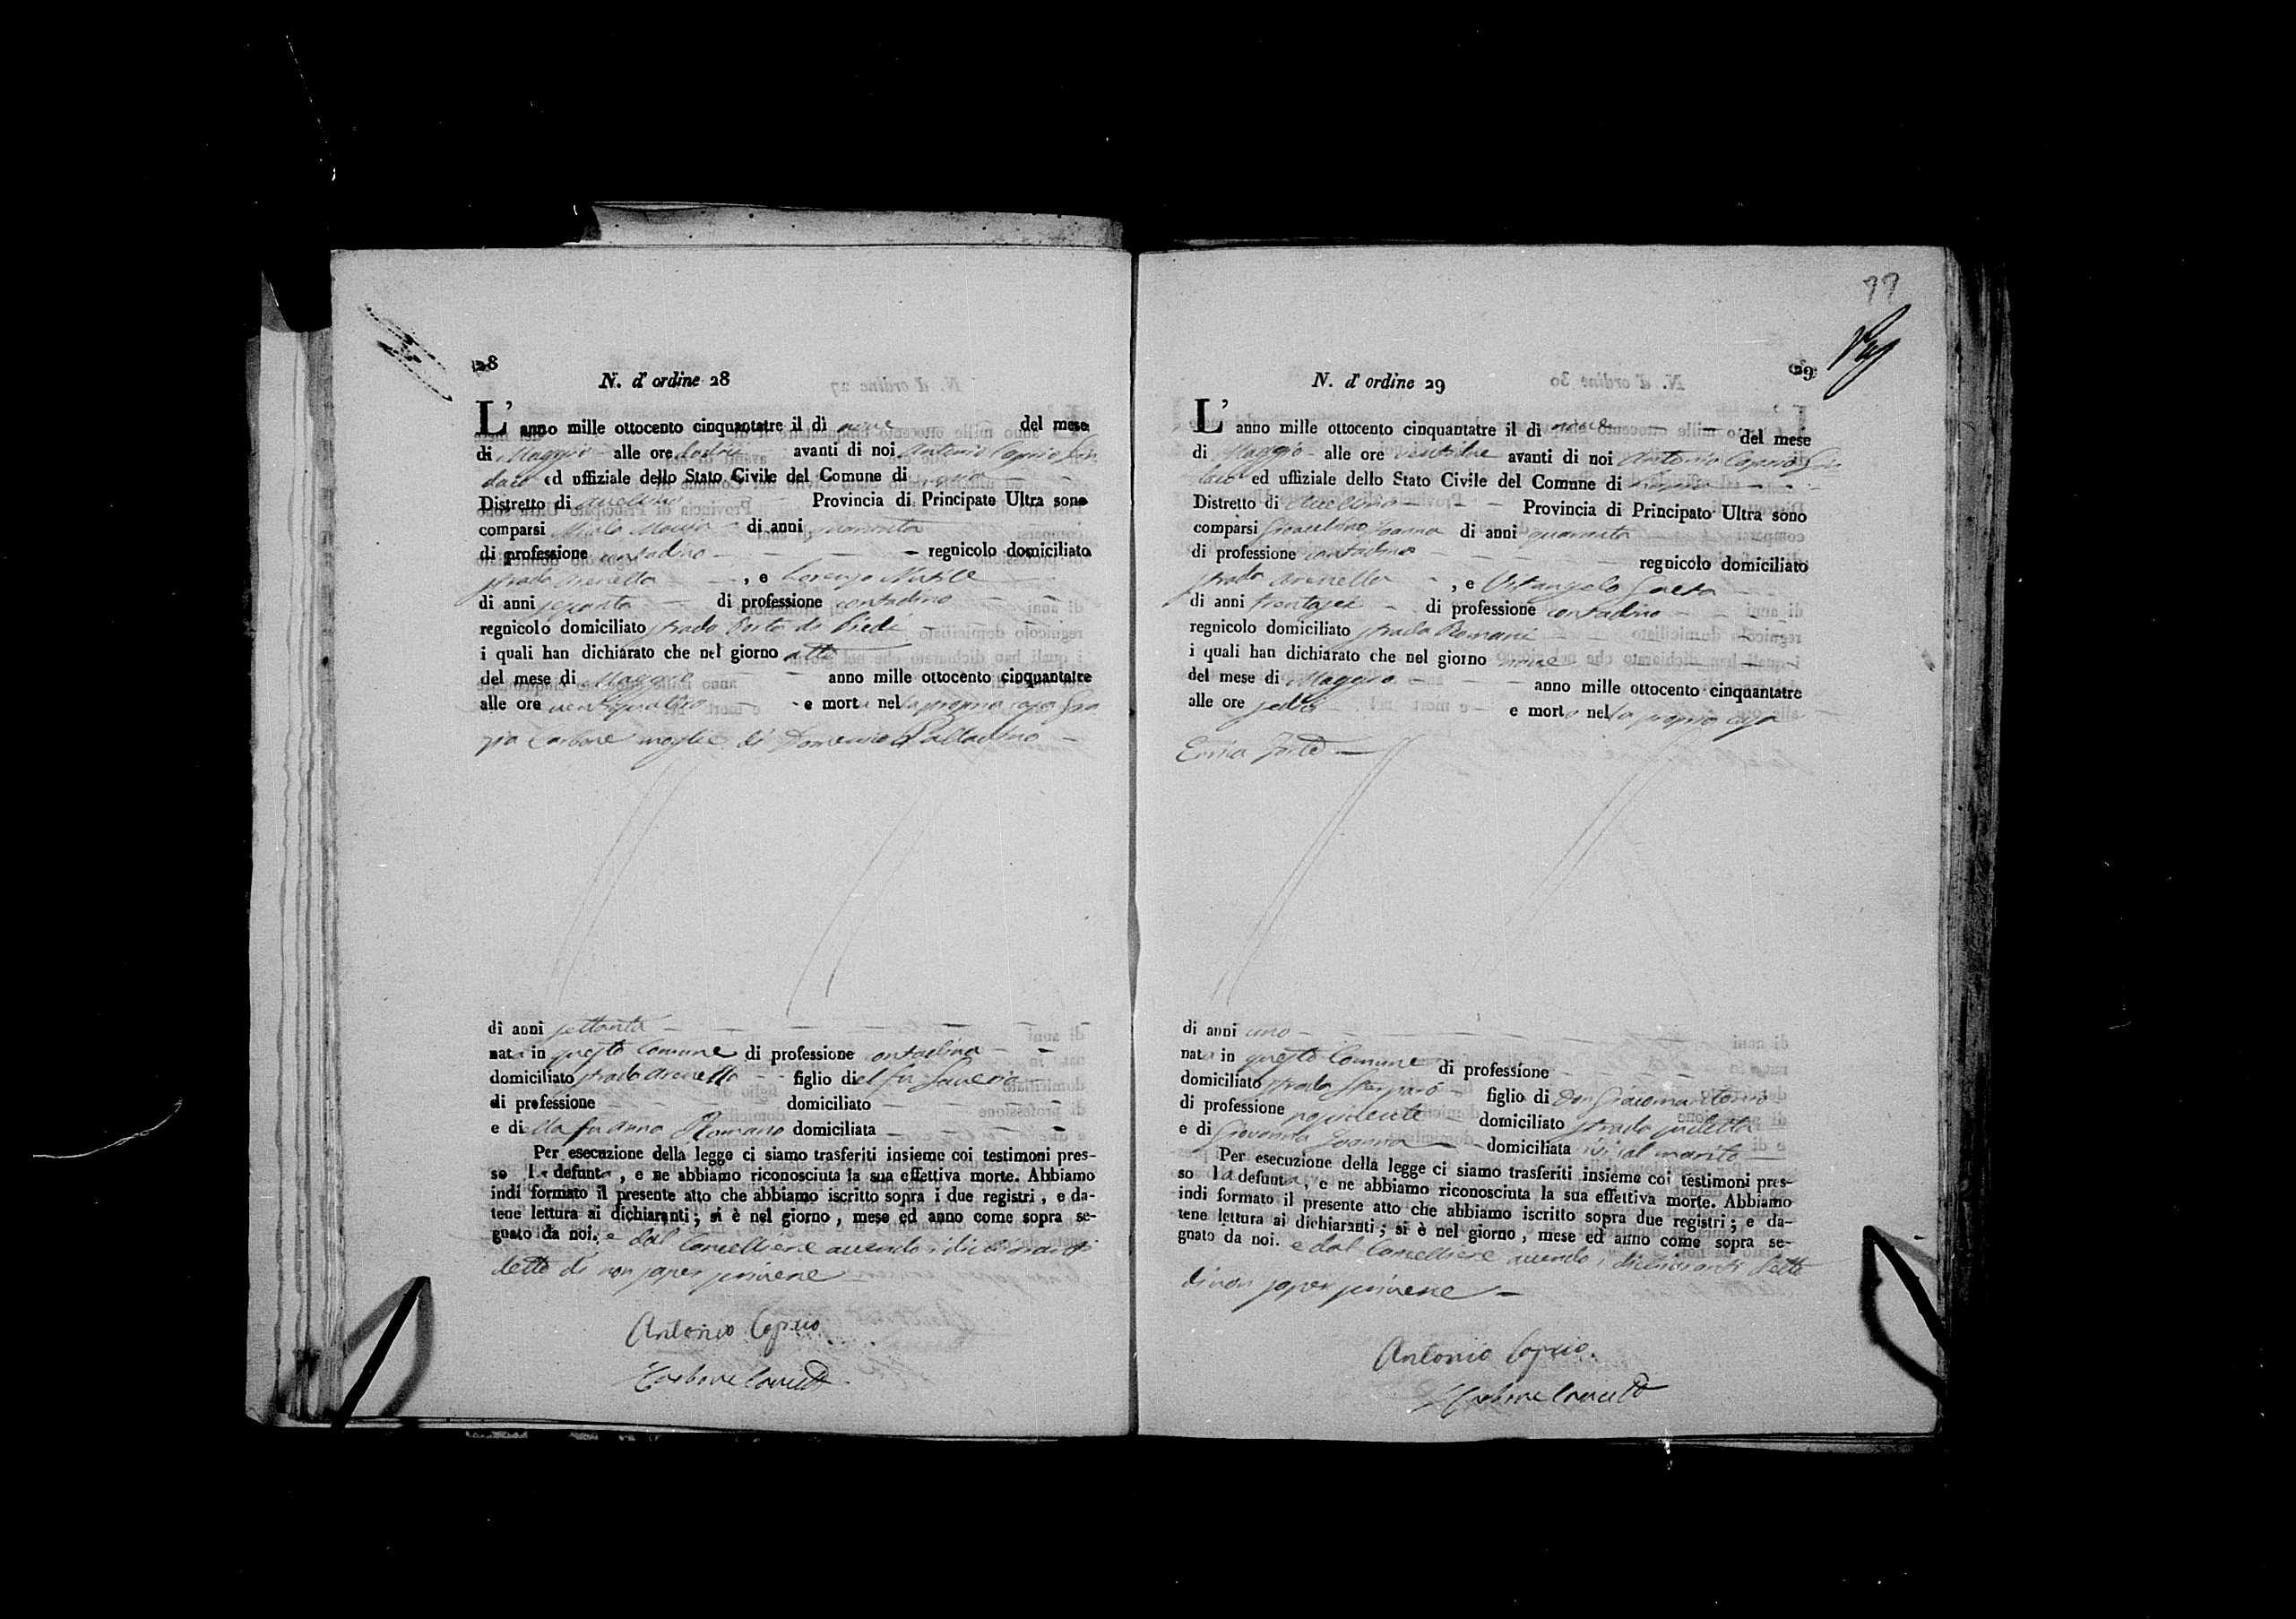 28
N. d' ordine 28
L' anno mille ottocento cinquantatre il dì nove del mese
di Maggio alle ore avanti di noi Antonio Caprio Sin
daco ed uffiziale dello Stato Civile del Comune di
Distretto di Avellino Provincia di Principato Ultra sono
comparsi di anni quaranta
di professione contadino regnicolo domiciliato
strada Arenella , e Lorenzo
di anni sessanta di professione contadino
regnicolo domiciliato strada Porta di Piedi
i quali han dichiarato che nel giorno otto
del mese di Maggio anno mille ottocento cinquantatre
alle ore ventiquattro e morta nella propria casa Gra
zia Carbone moglie di Domenico Palladino
di anni settanta
nata in questo Comune di professione contadina
domiciliato strada Arenella figlio del fu Saverio
di professione domiciliato
e di lla fu Anna Romano domiciliata
Per esecuzione della legge ci siamo trasferiti insieme coi testimoni pres-
so la defunta , e ne abbiamo riconosciuta la sua effettiva morte. Abbiamo
indi formato il presente atto che abbiamo iscritto sopra i due registri , e da-
tene lettura ai dichiaranti ; si è nel giorno , mese ed anno come sopra se-
gnato da noi. e dal Cancelliere avendo i dichiaranti
detto di non saper scrivere
Antonio Caprio
Carbone
77
29
N. d' ordine 29
L' anno mille ottocento cinquantatre il di nove del mese
di Maggio alle ore avanti di noi Antonio Caprio Sin
daco ed uffiziale dello Stato Civile del Comune di
Distretto di Avellino Provincia di Principato Ultra sono
comparsi di anni quaranta
di professione contadino regnicolo domiciliato
strada Arenella , e Vitangelo Gaeta
di anni trentasei di professione contadino
regnicolo domiciliato strada Romani
i quali han dichiarato che nel giorno nove
del mese di Maggio anno mille ottocento cinquantatre
alle ore sedici e morta nella propria casa
di anni uno
nata in questo Comune di professione
domiciliato strada figlio di Don Giacomantonio
di professione domiciliato strada
e di Giovanna domiciliata ivi col marito
Per esecuzione della legge ci siamo trasferiti insieme coi testimoni pres-
so la defunta , e ne abbiamo riconosciuta la sua effettiva morte. Abbiamo
indi formato il presente atto che abbiamo iscritto sopra due registri ; e da-
tene lettura ai dichiaranti ; si è nel giorno , mese ed anno come sopra se-
gnato da noi. e dal Cancelliere avendo i dichiaranti detto
di non saper scrivere
Antonio Caprio.
Carbone